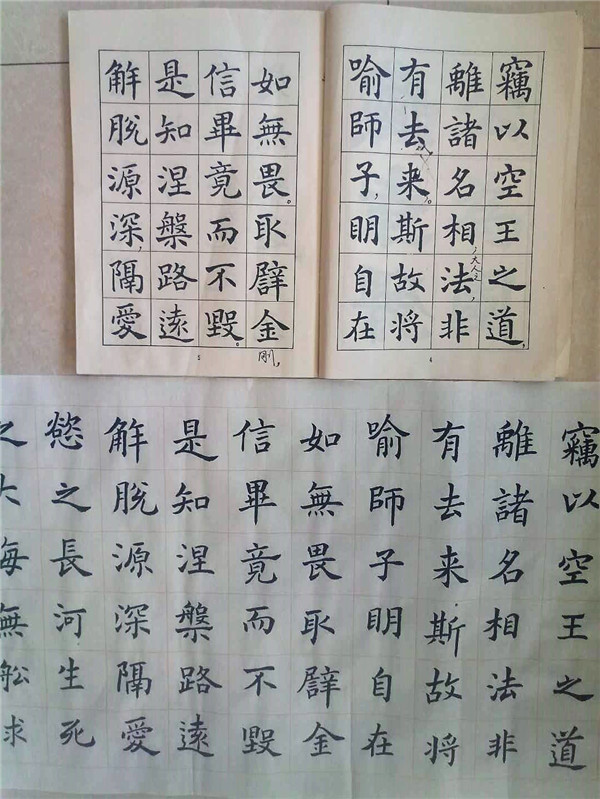 竊以空王之道,
離諸名相法非
有去来。斯故将
喻師子,明自在
如無畏。取譬金
剛,
信畢竟而不毀。
是知涅槃路遠
解脫源深,隔愛
竊以空王之道
離諸名相法非
有去来斯故将
喻師子明自在
如無畏取譬金
信畢竟而不毀
是知涅槃路遠
解脫源深隔愛
慾之長河生死
之大海無舩求